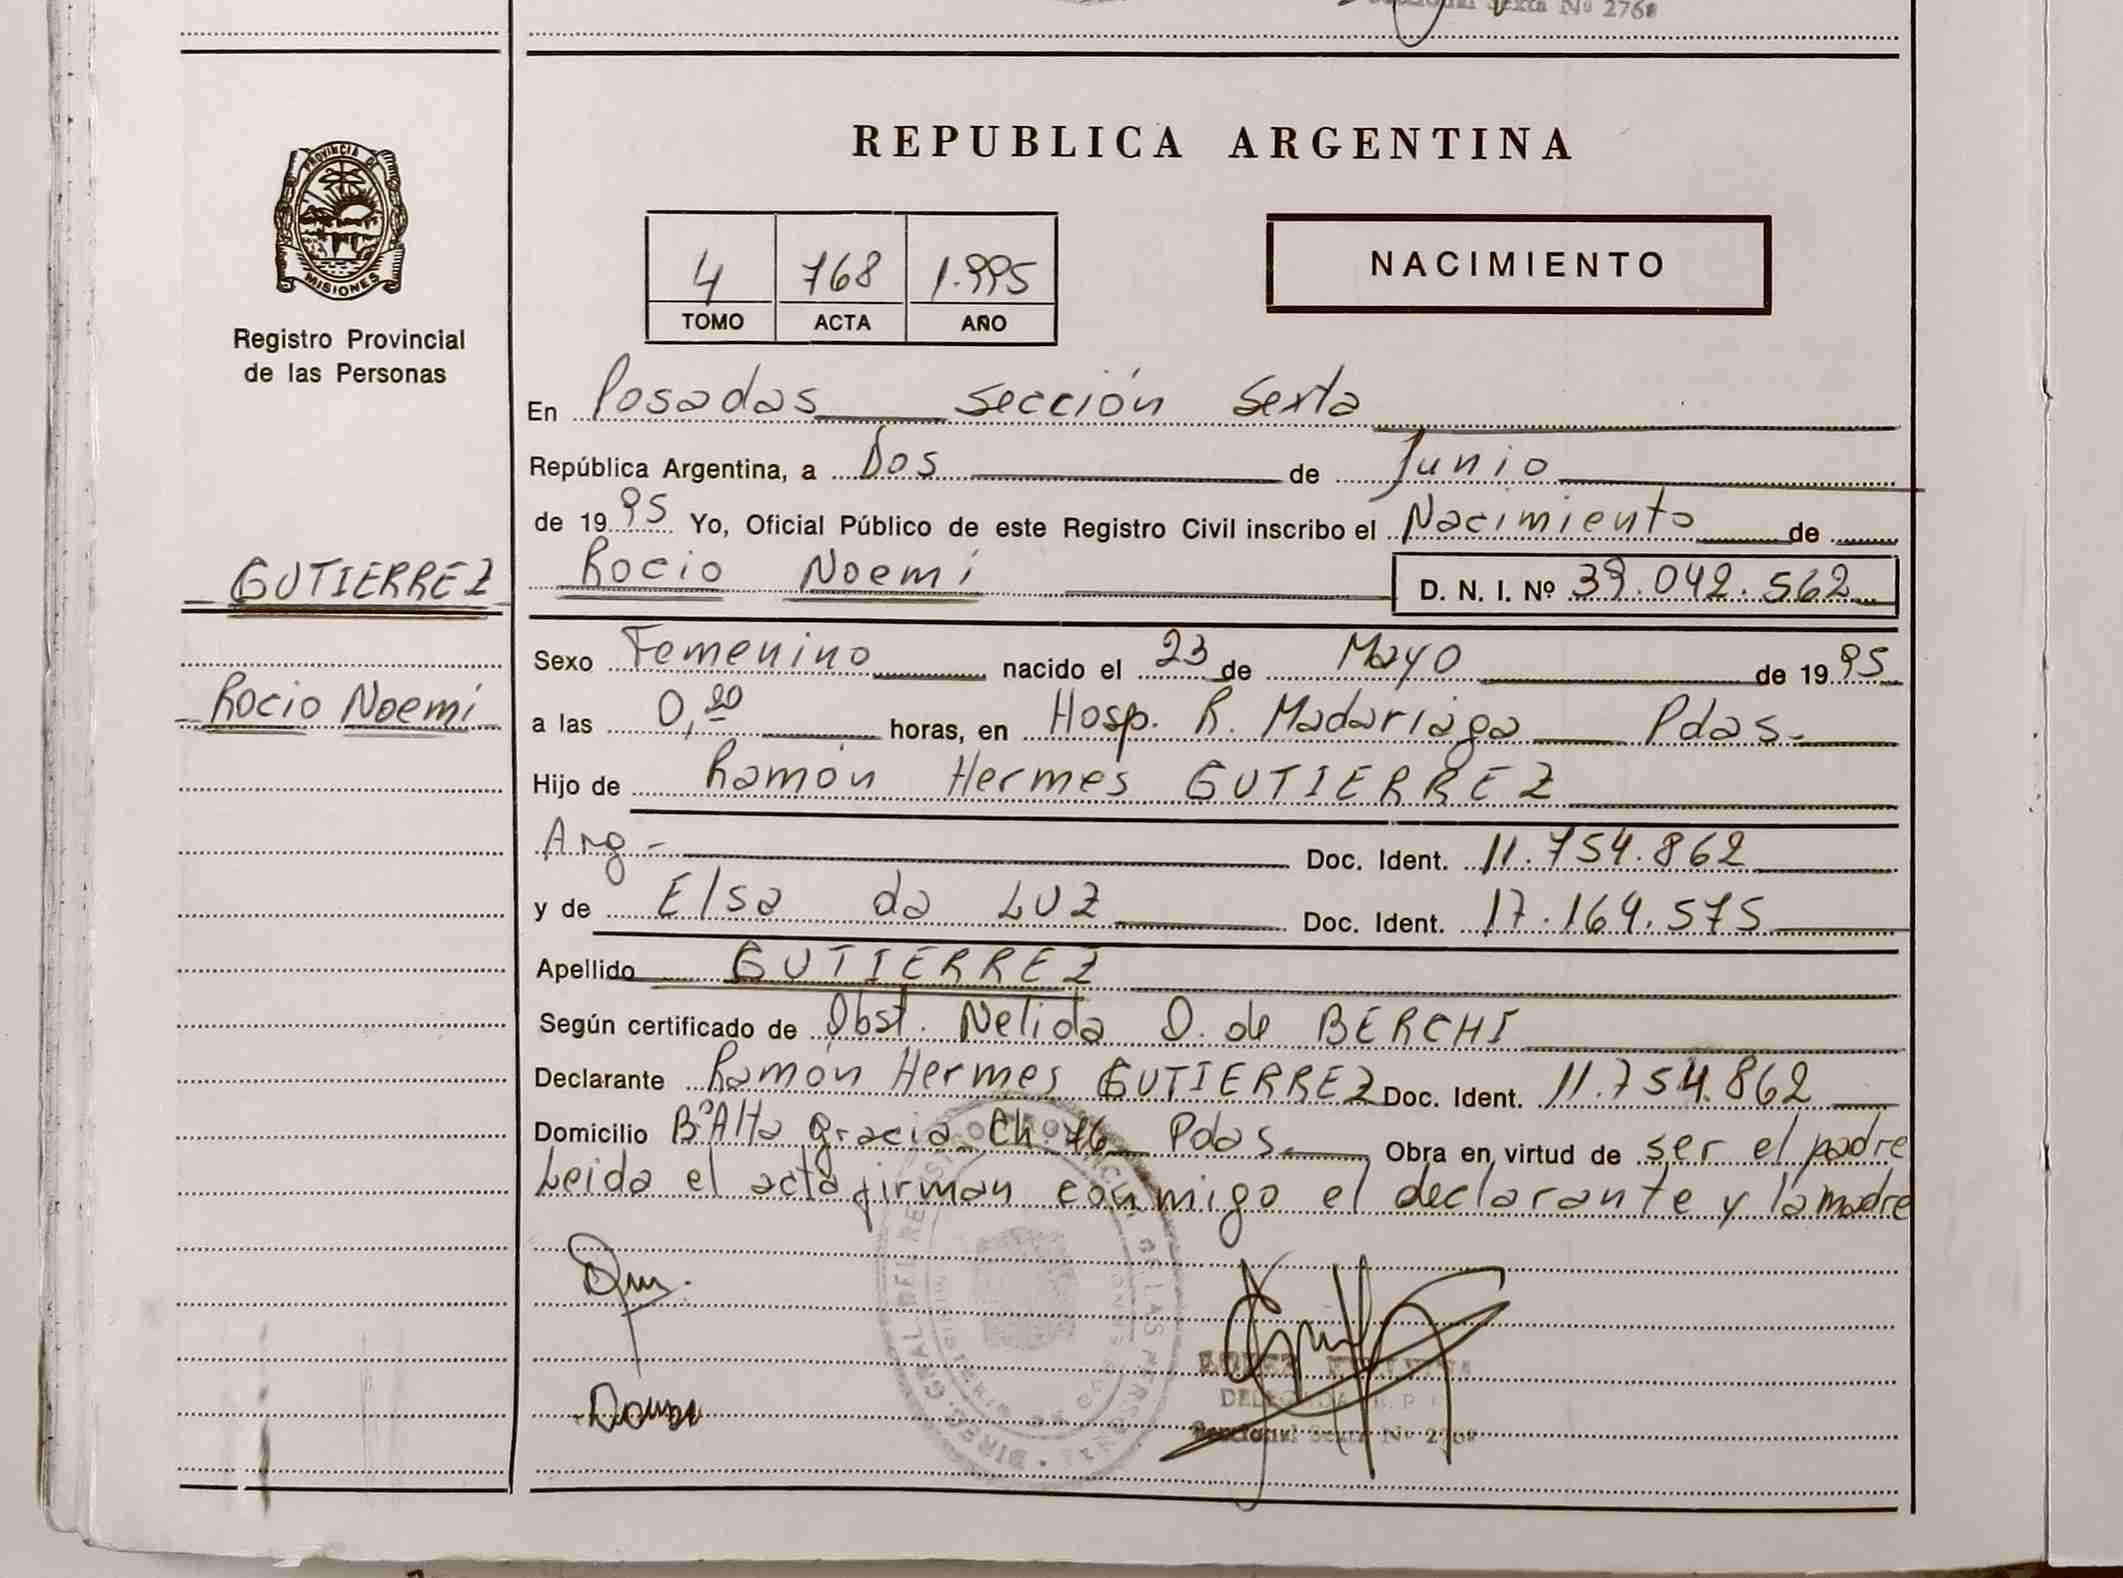 Seccional Sexta Nº 2768
PROVINCIA DE
MISIONES
Registro Provincial
de las Personas
GUTIERREZ
Rocio Noemí
REPUBLICA ARGENTINA
4 768 1.995
TOMO ACTA AÑO
NACIMIENTO
En Posadas sección Sexta
República Argentina, a Dos de Junio
de 1995 Yo, Oficial Público de este Registro Civil inscribo el Nacimiento de
Rocio Noemí D. N. I. Nº 39.042.562
Sexo Femenino nacido el 23 de Mayo de 1995
a las 0,20 horas, en Hosp. R. Madariaga Pdas.
Hijo de Ramón Hermes GUTIERREZ
Arg - Doc. Ident. 11.754.862
y de Elsa da LUZ Doc. Ident. 17.164.575
Apellido GUTIERREZ
Según certificado de Obst. Nelida O. de BERCHI
Declarante Ramón Hermes GUTIERREZ Doc. Ident. 11.754.862
Domicilio Bº Alta gracia Ch. 76 Pdas. Obra en virtud de ser el padre
Leida el acta firman conmigo el declarante y la madre
DELEGADA R. P.
Seccional Sexta Nº 2768